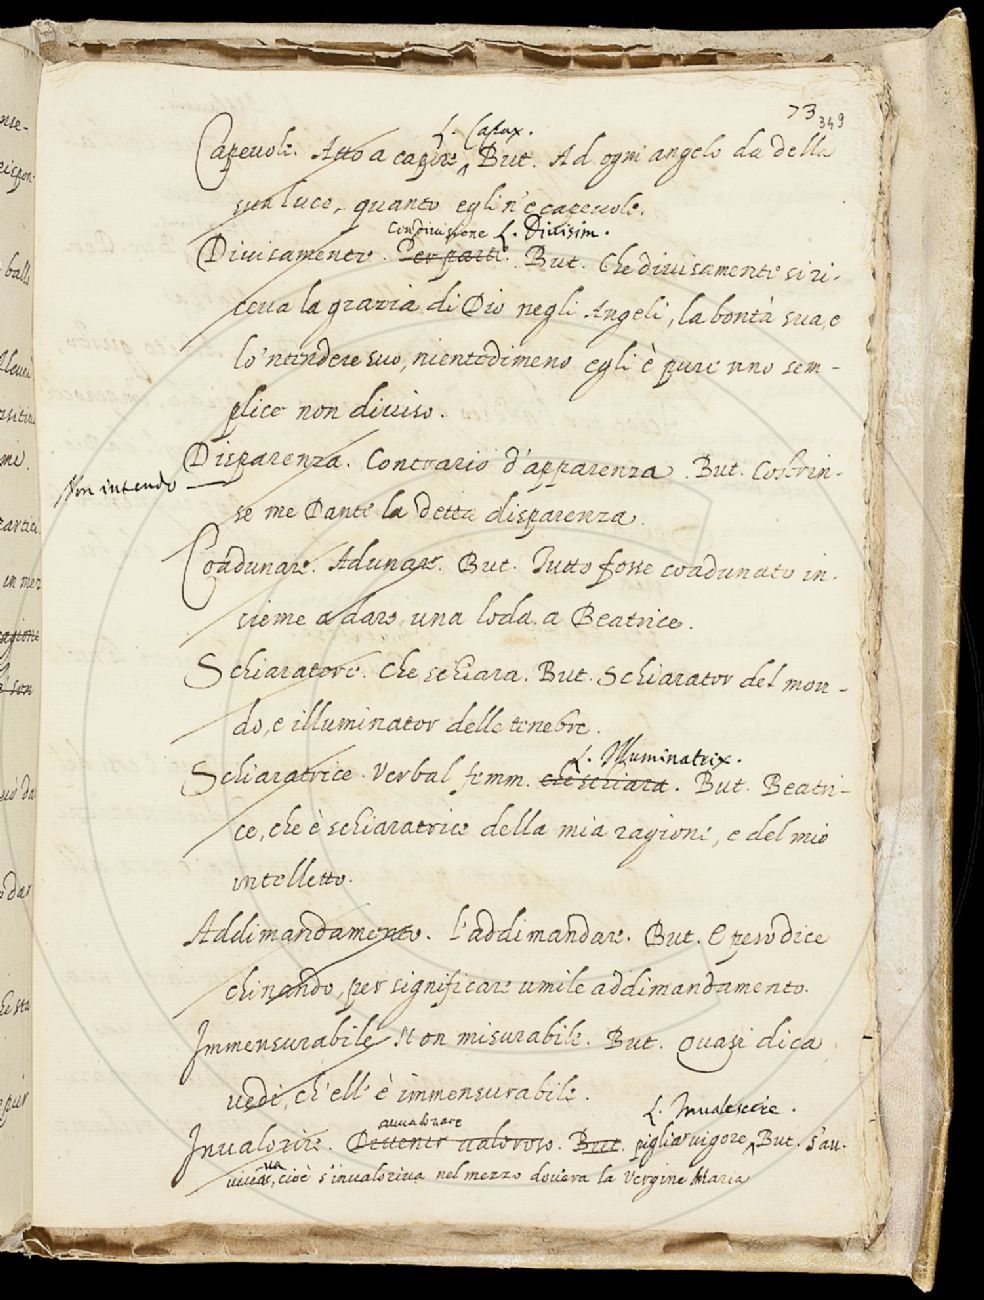 73
349
L. Capax.
Capevole. Atto a capire, But. Ad ogni angelo da della
sua luce, quanto egli n'è capevole.
Con divisione L. Divisim.
Divisamente. Per parti. But. Che divisamente si ri-
ceva la grazia di Dio negli Angeli, la bontà sua, e
lo 'ntendere suo, nientedimeno egli è pure uno sem-
plice non diviso.
Disparenza. Contrario d'apparenza. But. Costrin-
Non intendo
se me Dante la detta disparenza.
Coadunare. Adunare. But. Tutto fosse coadunato in-
sieme a dare una loda a Beatrice.
Schiaratore. Che schiara. But. Schiarator del mon-
do, e illuminator delle tenebre.
L. Illuminatrix.
Schiaratrice. Verbal femm. che schiara. But. Beatri-
ce, che è schiaratrice della mia ragione, e del mio
intelletto.
Addimandamento. L'addimandare. But. E però dice
chinando, per significare umile addimandamento.
Immensurabile Non misurabile. But. Quasi dica
vedi, ch'ell'è immensurabile.
avvalorare L. Invalescere.
Invalorire. Divenir valoroso. But. pigliar vigore, But. s'av-
viva, cioè s'invaloriva nel mezzo dov'era la Vergine Maria